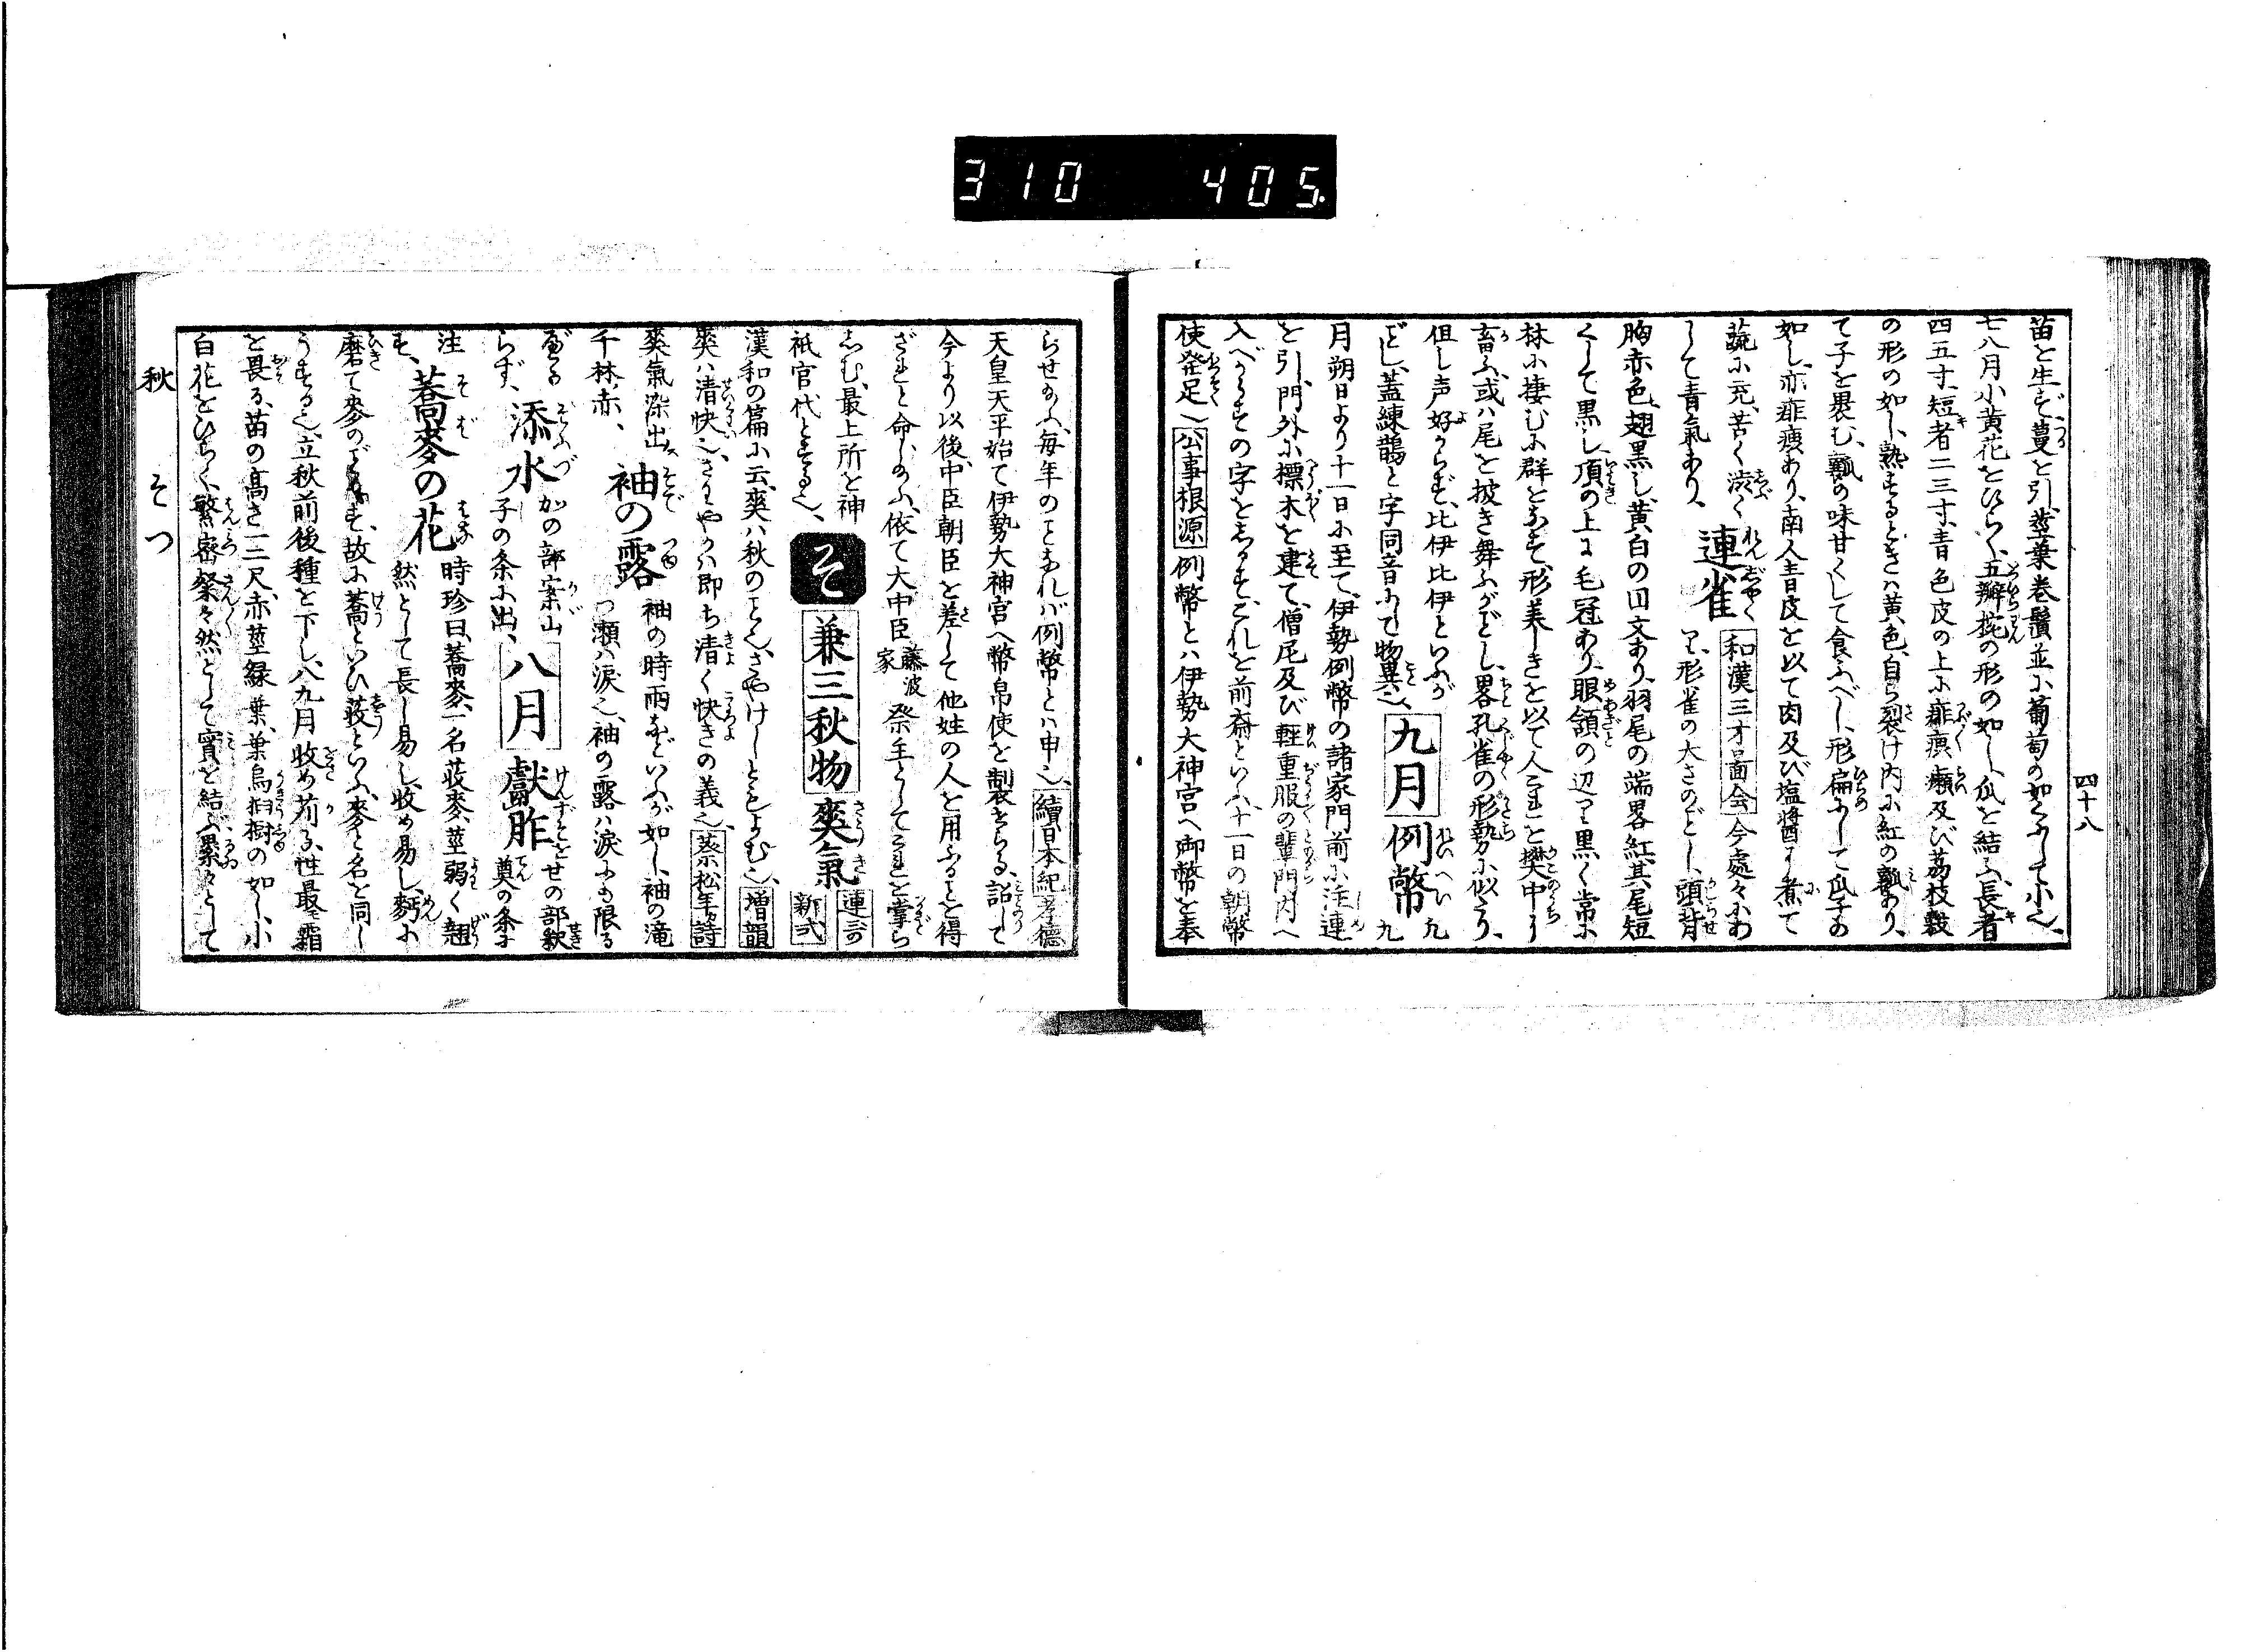 310 405
四十八
苗を生ず、蔓を引、莖葉卷鬚並に葡萄の如くにして小也、
七八月小黄花をひらく、五瓣椀の形の如し、瓜を結ふ、長者
四五寸、短者二三寸、青色皮の上に痱㾦癩及び茘枝殼
の形の如し、熟するときハ黄色、自ら裂け内に紅の瓤あり、
て子を畏む、瓤の味甘くして食ふべし、形扁にして瓜子の
如し、亦痱㾦あり、南人青皮を以て肉及び塩醬に煮て
蔬に充、苦く渋く
して青氣あり、
連雀
和漢三才啚会 今處々にあ
り、形雀の大さのごとし、頭背
胸赤色、翅黒し、黄白の円文あり、羽尾の端畧紅、其尾短
くして黒し、頂の上に毛冠あり、眼頷の辺り黒く常に
林に棲むに群をなす、形美しきを以て人これを樊中に
畜ふ、或ハ尾を披き舞ふがごとし、畧孔雀の形勢に似たり、
但し声好からず、比伊比伊といふが
ごとし、蓋練鵲と字同音にして物異也、
九月
例幣
九
月朔日より十一日に至て、伊勢例幣の諸家門前に注連
を引、門外に標木を建て、僧尼及び軽重服の輩門内へ
入べからずの字をしるす、これを前斎といふ、十一日の朝幣
使発足也 公事根源 例幣とハ伊勢大神宮へ御幣を奉
らせ給ふ、毎年のことなれバ例幣とハ申也、續日本紀 孝德
天皇天平始て伊勢大神宮へ幣帛使を製せらる、詔して
今より以後、中臣朝臣を差して他姓の人を用ふることを得
ざれと命じ給ふ、依て大中臣藤波家祭主としてこれを掌ら
しむ、最上所を神
祇官代とする也、
そ
兼三秋物
爽氣
連哥
新式
漢和の篇に云、爽ハ秋のこと也、さやけしともよむ也、増韻
爽ハ清快也、さわやかハ即ち清く快きの義也、蔡松年詩
爽氣染出ス
千林赤、
袖の露
袖の時雨などいふが如し、袖の滝
つ瀬ハ涙也、袖の露ハ涙にも限る
べからず、
添水
かの部案山
子の条に出、
八月
獻胙
せの部釈
奠の条に
注す、
蕎麥の花
時珍曰、蕎麥、一名荍麥、莖弱く翹
然として長し易し、收め易し、麪に
磨て麥のごとし、故に蕎といひ荍といふ、麥と名を同し
うする也、立秋前後種を下し、八九月收め苅る、性最モ霜
を畏る、苗の高さ一二尺、赤莖緑葉、葉烏桕樹の如し、小
白花をひらく、繁密粲々然として實を結ふ、累々として
秋　そ　つ